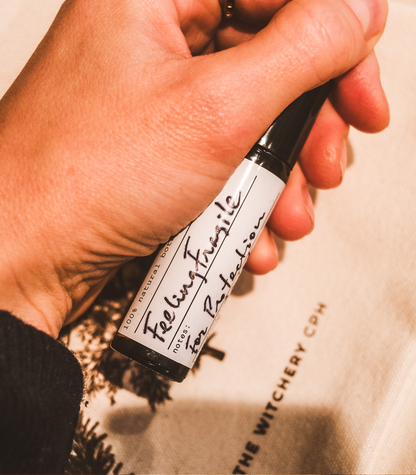 100% natural bot
Feeling Fragile
notes:
For Protection
THE WITCHERY CPH